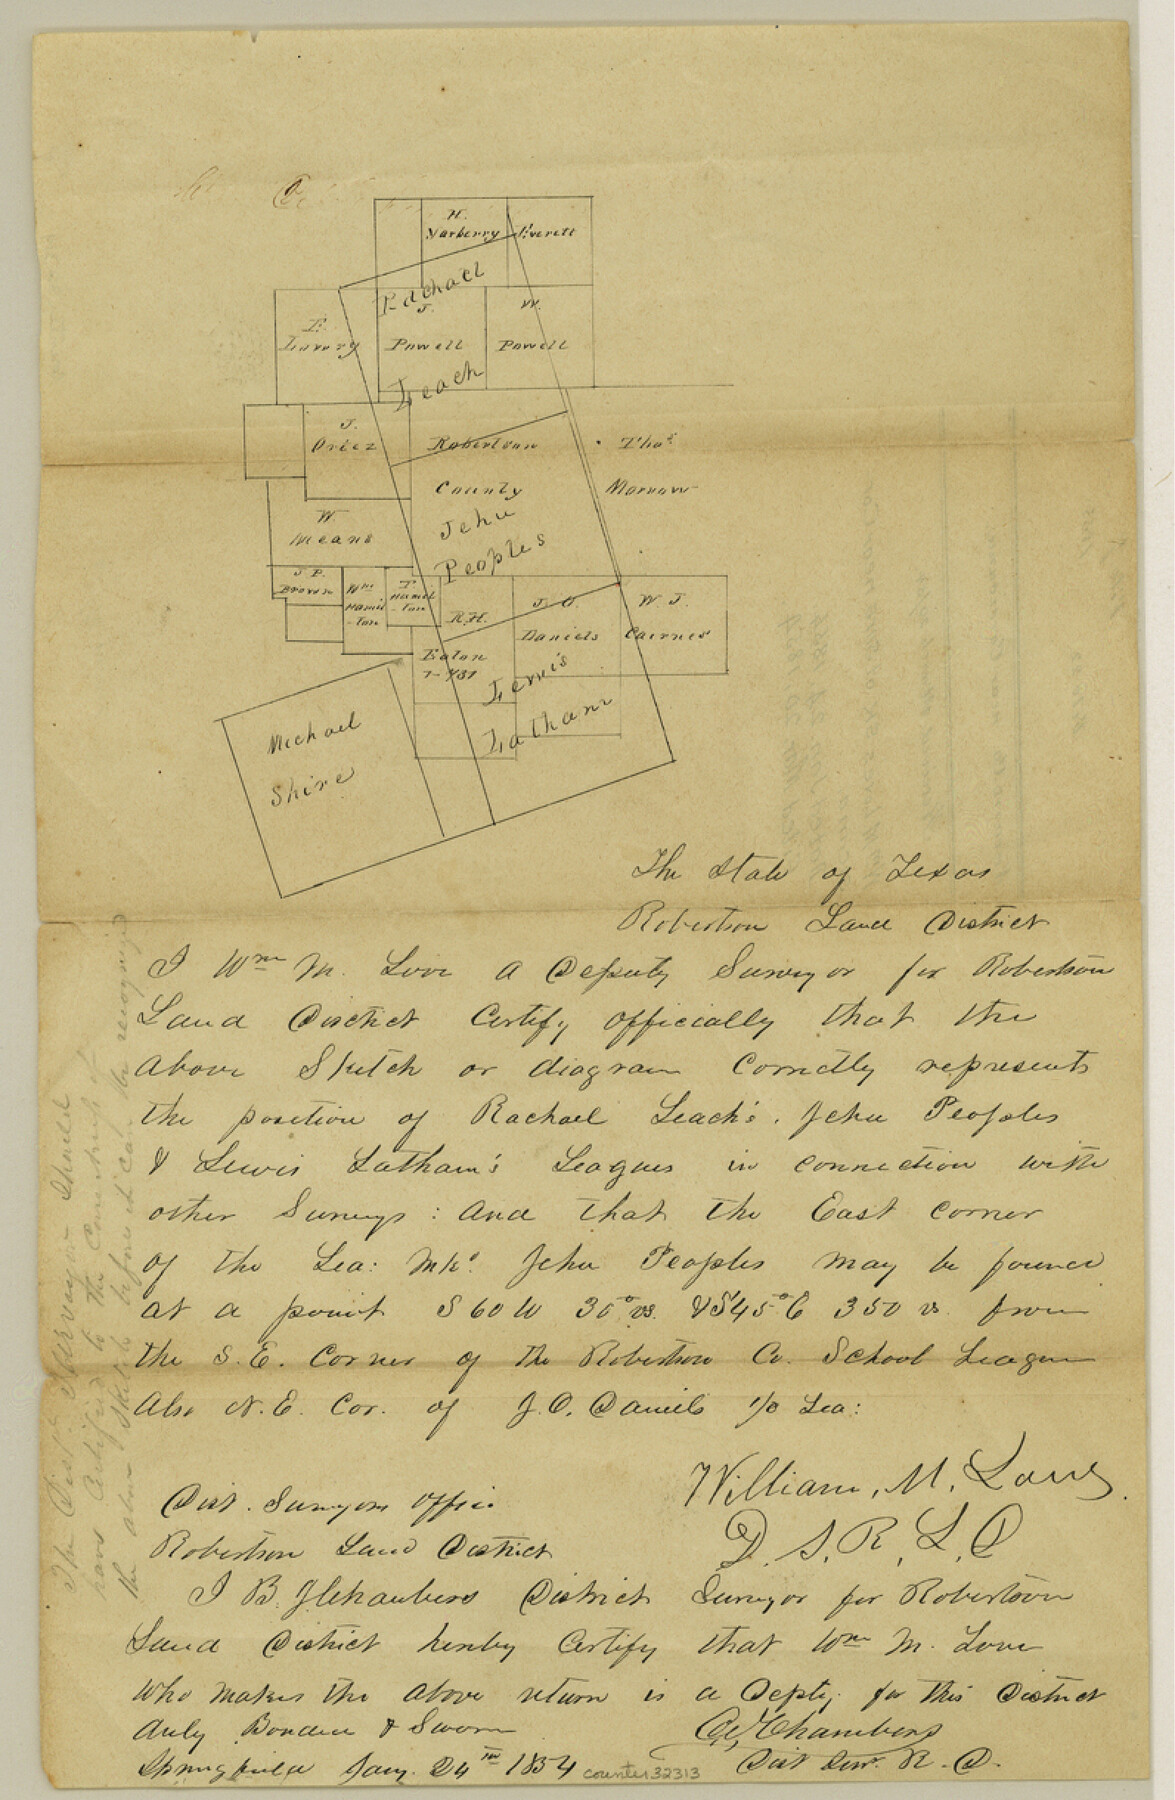 H.
Yarberry
Everett
Rachael
J.
W.
Powell
Powell
Leach
J.
Robertson
Thos
County
Morrow
W.
Means
Jehu
Peoples
J. P.
Brown
Wm
Hamil
-ton
Hamil
-ton
R.H.
J. O.
W. J.
Eaton
Daniels
Cairnes
Lewis
Latham
Michael
Shire
The State of Texas
Robertson Land District
I Wm M. Love a Deputy Surveyor for Robertson
Land District Certify officially that the
above Sketch or diagram Correctly represents
the position of Rachael Leach's, Jehu Peoples
& Lewis Latham's Leagues in connection with
other Surveys: and that the East corner
of the Lea: Mkd. Jehu Peoples may be found
at a point S 60 W 30 vs. & S 45° E 350 vs. from
the S.E. Corner of the Robertson Co. School League
Also N.E. Cor. of J.O. Daniels 1/3 Lea:
William, M. Love
D. S. R. L. D
Dist. Surveyors Office
Robertson Land District
I B. J. Chambers District Surveyor for Robertson
Land District hereby Certify that Wm M. Love
who makes the above return is a Depty. for this District
duly Bonded & Sworn
B J Chambers
Springfield Jany. 24th 1854
Dist Sur. R. D.
counter 32313
The Dist. Surveyor should
have Certified to the Correctness of
the above Sketch before it can be recognized